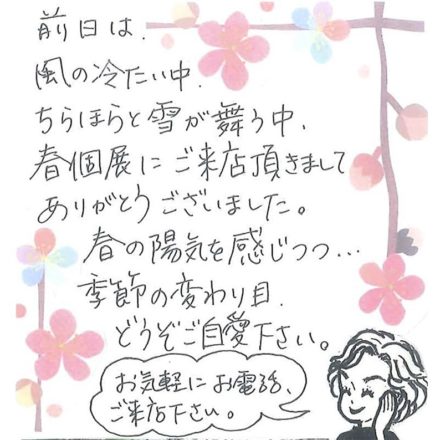 前日は、
風の冷たい中、
ちらほらと雪が舞う中、
春個展にご来店頂きまして
ありがとうございました。
春の陽気を感じつつ…
季節の変わり目、
どうぞご自愛下さい。
お気軽にお電話、
ご来店下さい。